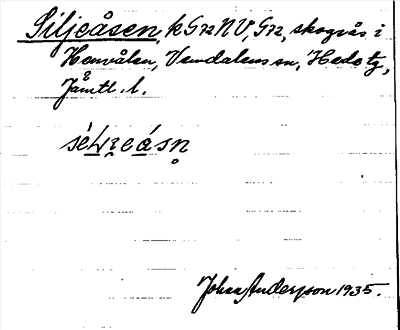 Siljeåsen, k G72 NV, G72, skogsås i
Hemvålen, Vemdalens sn, Hede tg,
Jämtl. l.
Johan Anderzson 1935.